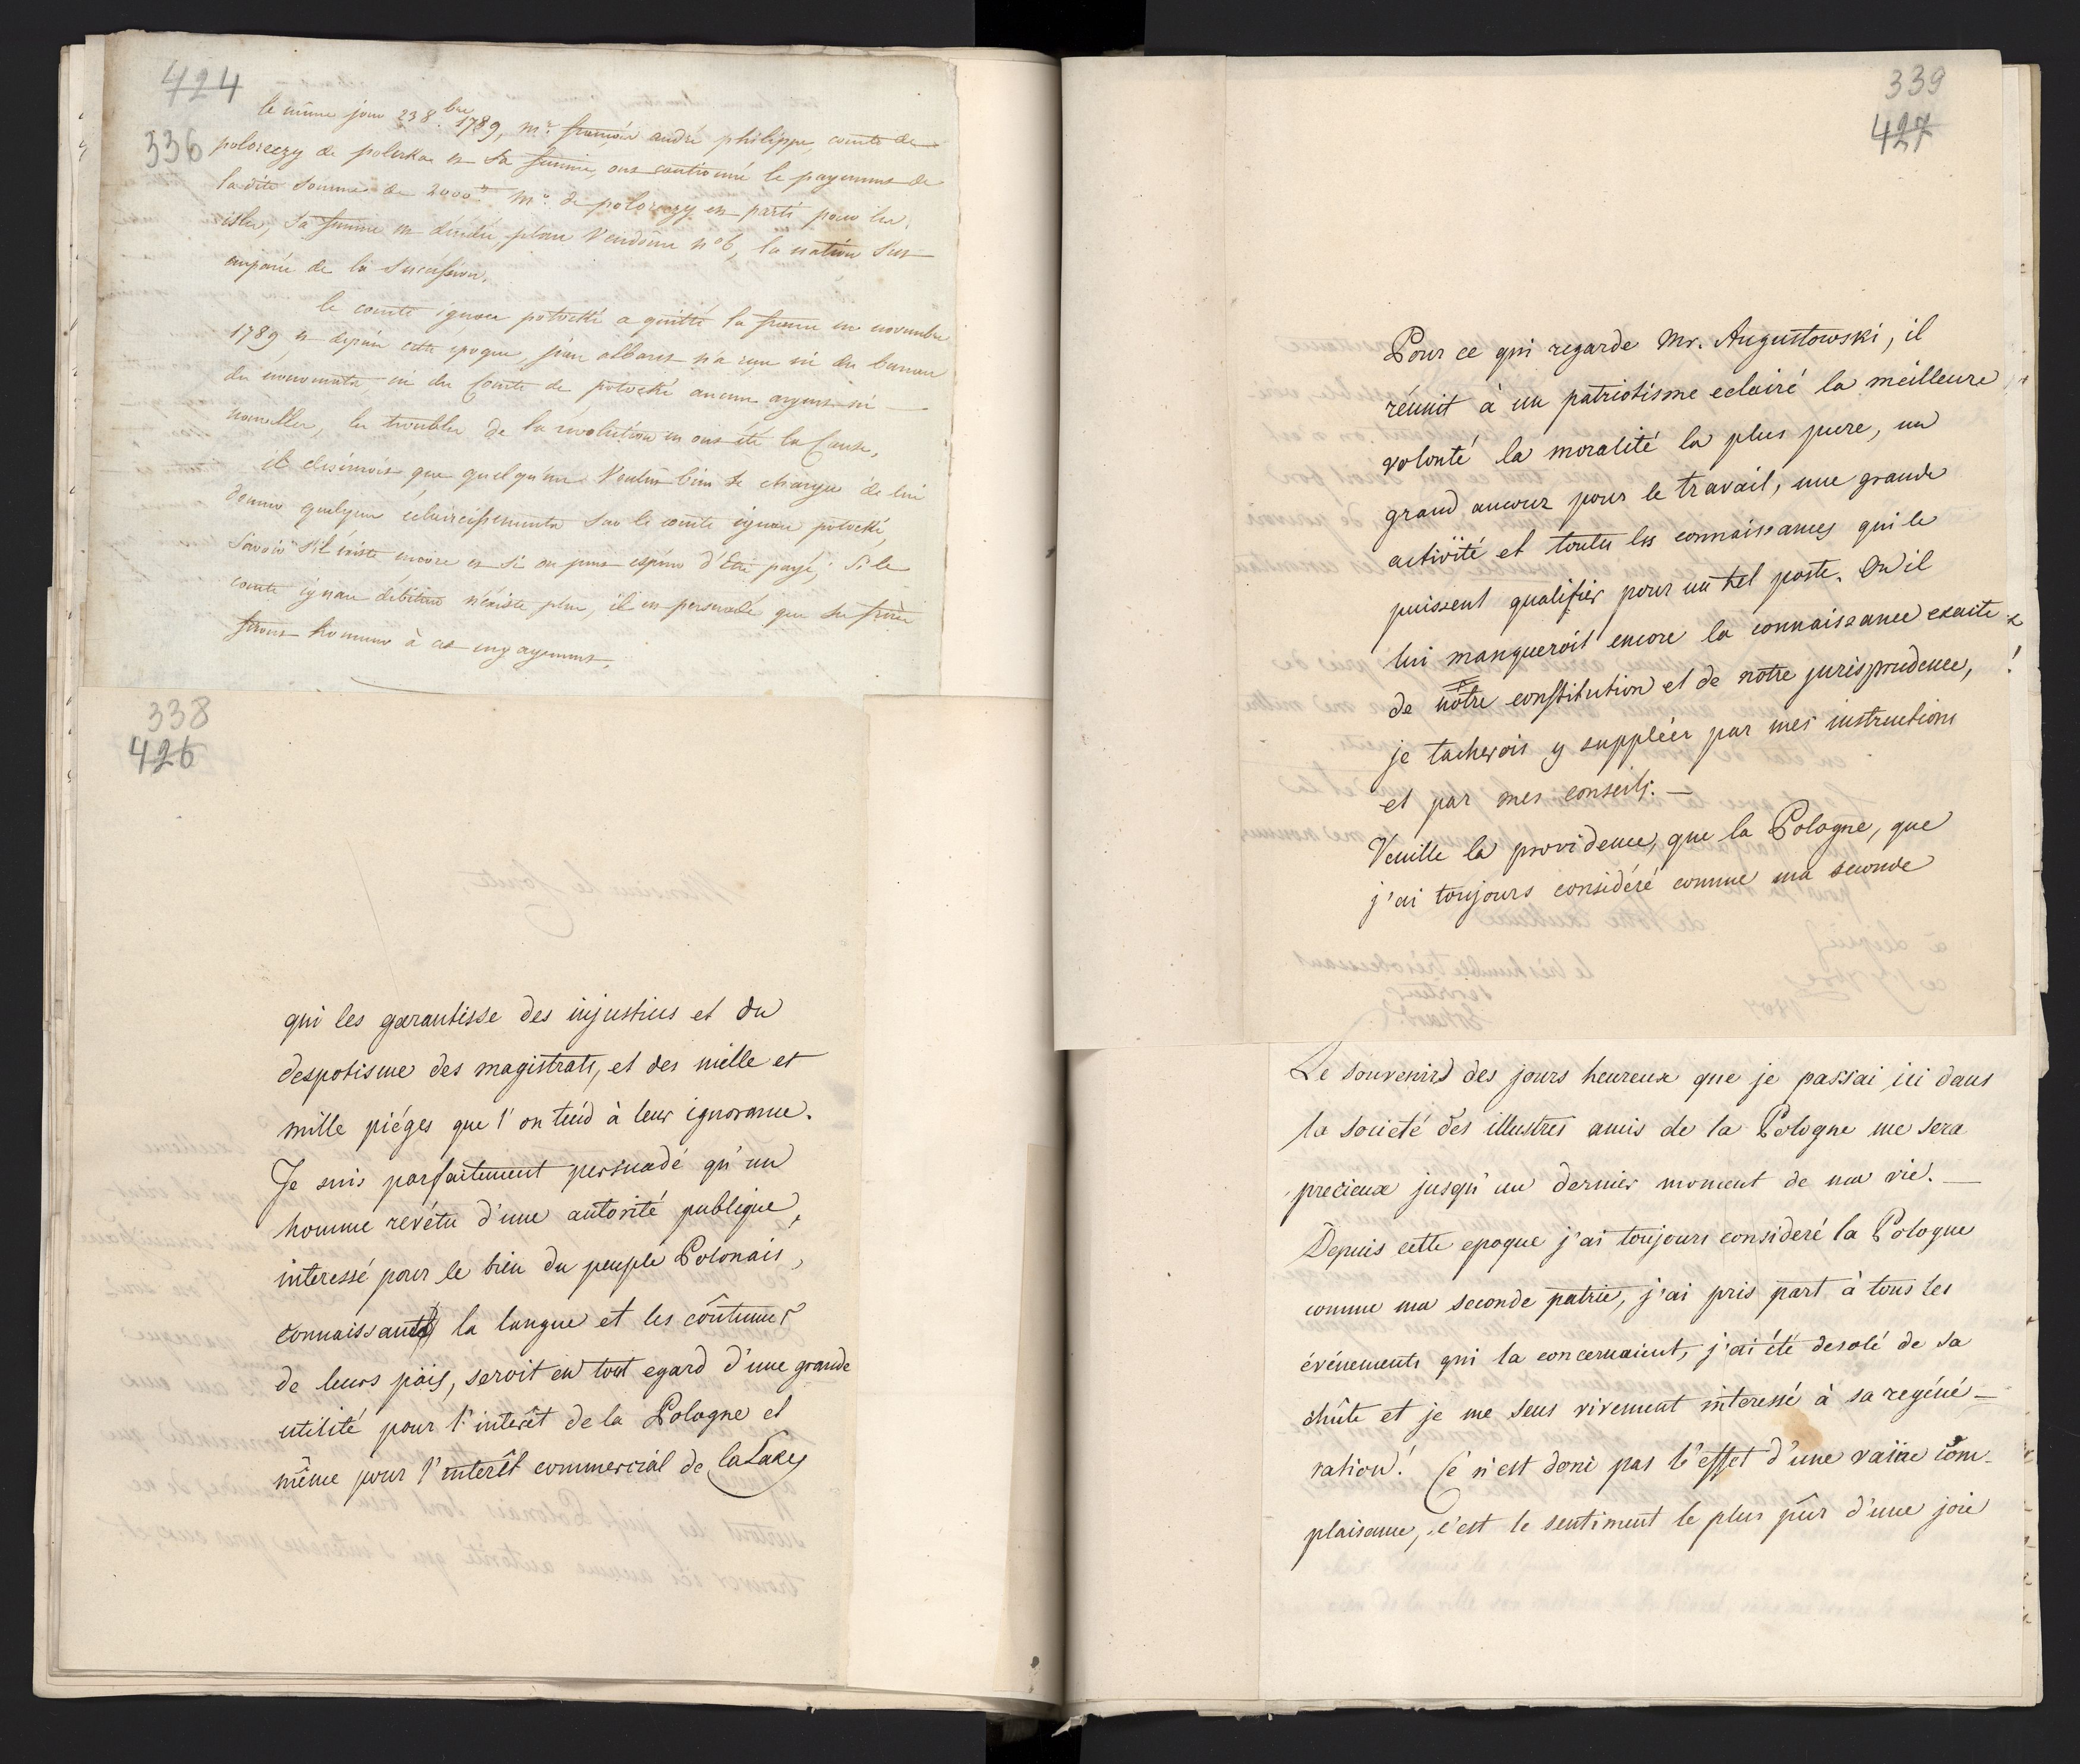 424
336
le même jour 23 8.bre 1789, Mr. françois andré philippe, comte de
poloreczy de polerka et sa femme, ont cautionné le payement de
la dite somme de 2000.tt Mr. de poloreczy est parti pour les
isles, sa femme est décédée place Vendôme n° 6, la nation s'est
emparée de la succession.
le comte ignace potocki a quitté la france en novembre
1789, et depuis cette epoque, jean albaret n'a reçu ni du
ni du Comte de potocki aucun argent ni
nouvelles, les troubles de la revolution en ont été la Cause.
il desireroit que quelqu'un Voulut bien se charger de lui
donner quelques eclaircissements sur le comte ignace potocki,
Savoir s'il existe encore et si on peut espérer d'Etre payé; Si le
comte ignace débiteur n'existe plus, il est persuadé que ses frères
feront honneur à cet engagement.
338
426
qui les garantisse des injustices et du
despotisme des magistrats, et des mille et
mille piéges que l'on tend à leur ignorance.
Je suis parfaitement persuadé qu'un
homme revétu d'une autorité publique,
interessé pour le bien du peuple Polonais,
connaissant la langue et les coûtumes
de leurs païs, seroit en tout egard d'une grande
utilité pour l'interêt de la Pologne et
même pour l'interêt commercial de la Saxe
339
427
Pour ce qui regarde Mr. Augustowski, il
réunit à un patriotisme eclairé la meilleure
volonté la moralité la plus pure, un
grand amour pour le travail, une grande
activïté et toutes les connaissances qui le
puissent qualifier pour un tel poste. Qu'il
lui manqueroit encore la connaissance exacte
de nôtre constitution et de notre jurisprudence,
je tacherois y suppléer par mes instructions
et par mes conseils. —
Veuille la providence, que la Pologne, que
j'ai toujours considéré comme ma seconde
Le souvenir des jours heureux que je passai ici dans
la societé des illustres amis de la Pologne me sera
precieux jusqu'au dernier moment de ma vie. —
Depuis cette epoque j'ai toujours consideré la Pologne
comme ma seconde patrie, j'ai pris part à tous les
événements qui la concernaient, j'ai été desolé de sa
chûte et je me sens vivement interessé à sa regéné-
ration! Ce n'est donc pas l'effet d'une vaine com-
plaisance, c'est le sentiment le plus pûr d'une joie